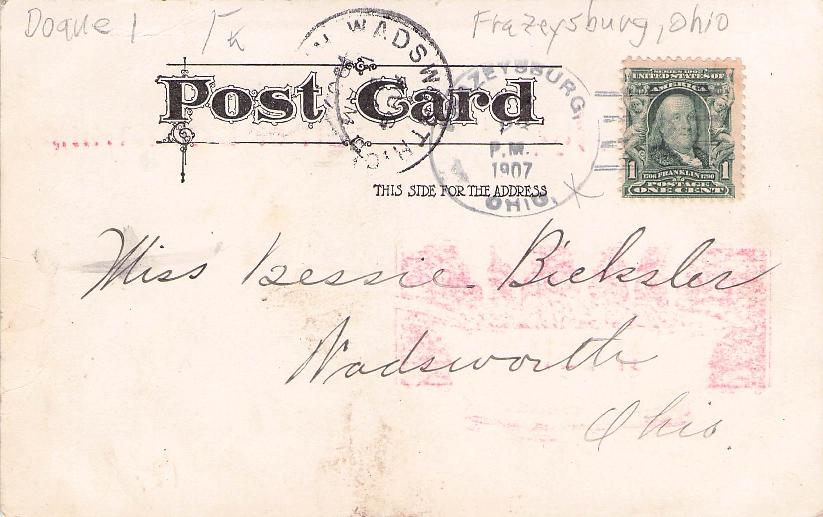 Doane 1
Frazeysburg, Ohio
WADSWORTH
OHIO
ZEYSBURG,
P.M.
1907
OHIO.
Post Card
THIS SIDE FOR THE ADDRESS
SERIES 1902
UNITED STATES OF
AMERICA
1706 FRANKLIN 1790
1 1
POSTAGE
ONE CENT
Miss Bessie Bicksler
Wadsworth
Ohio.